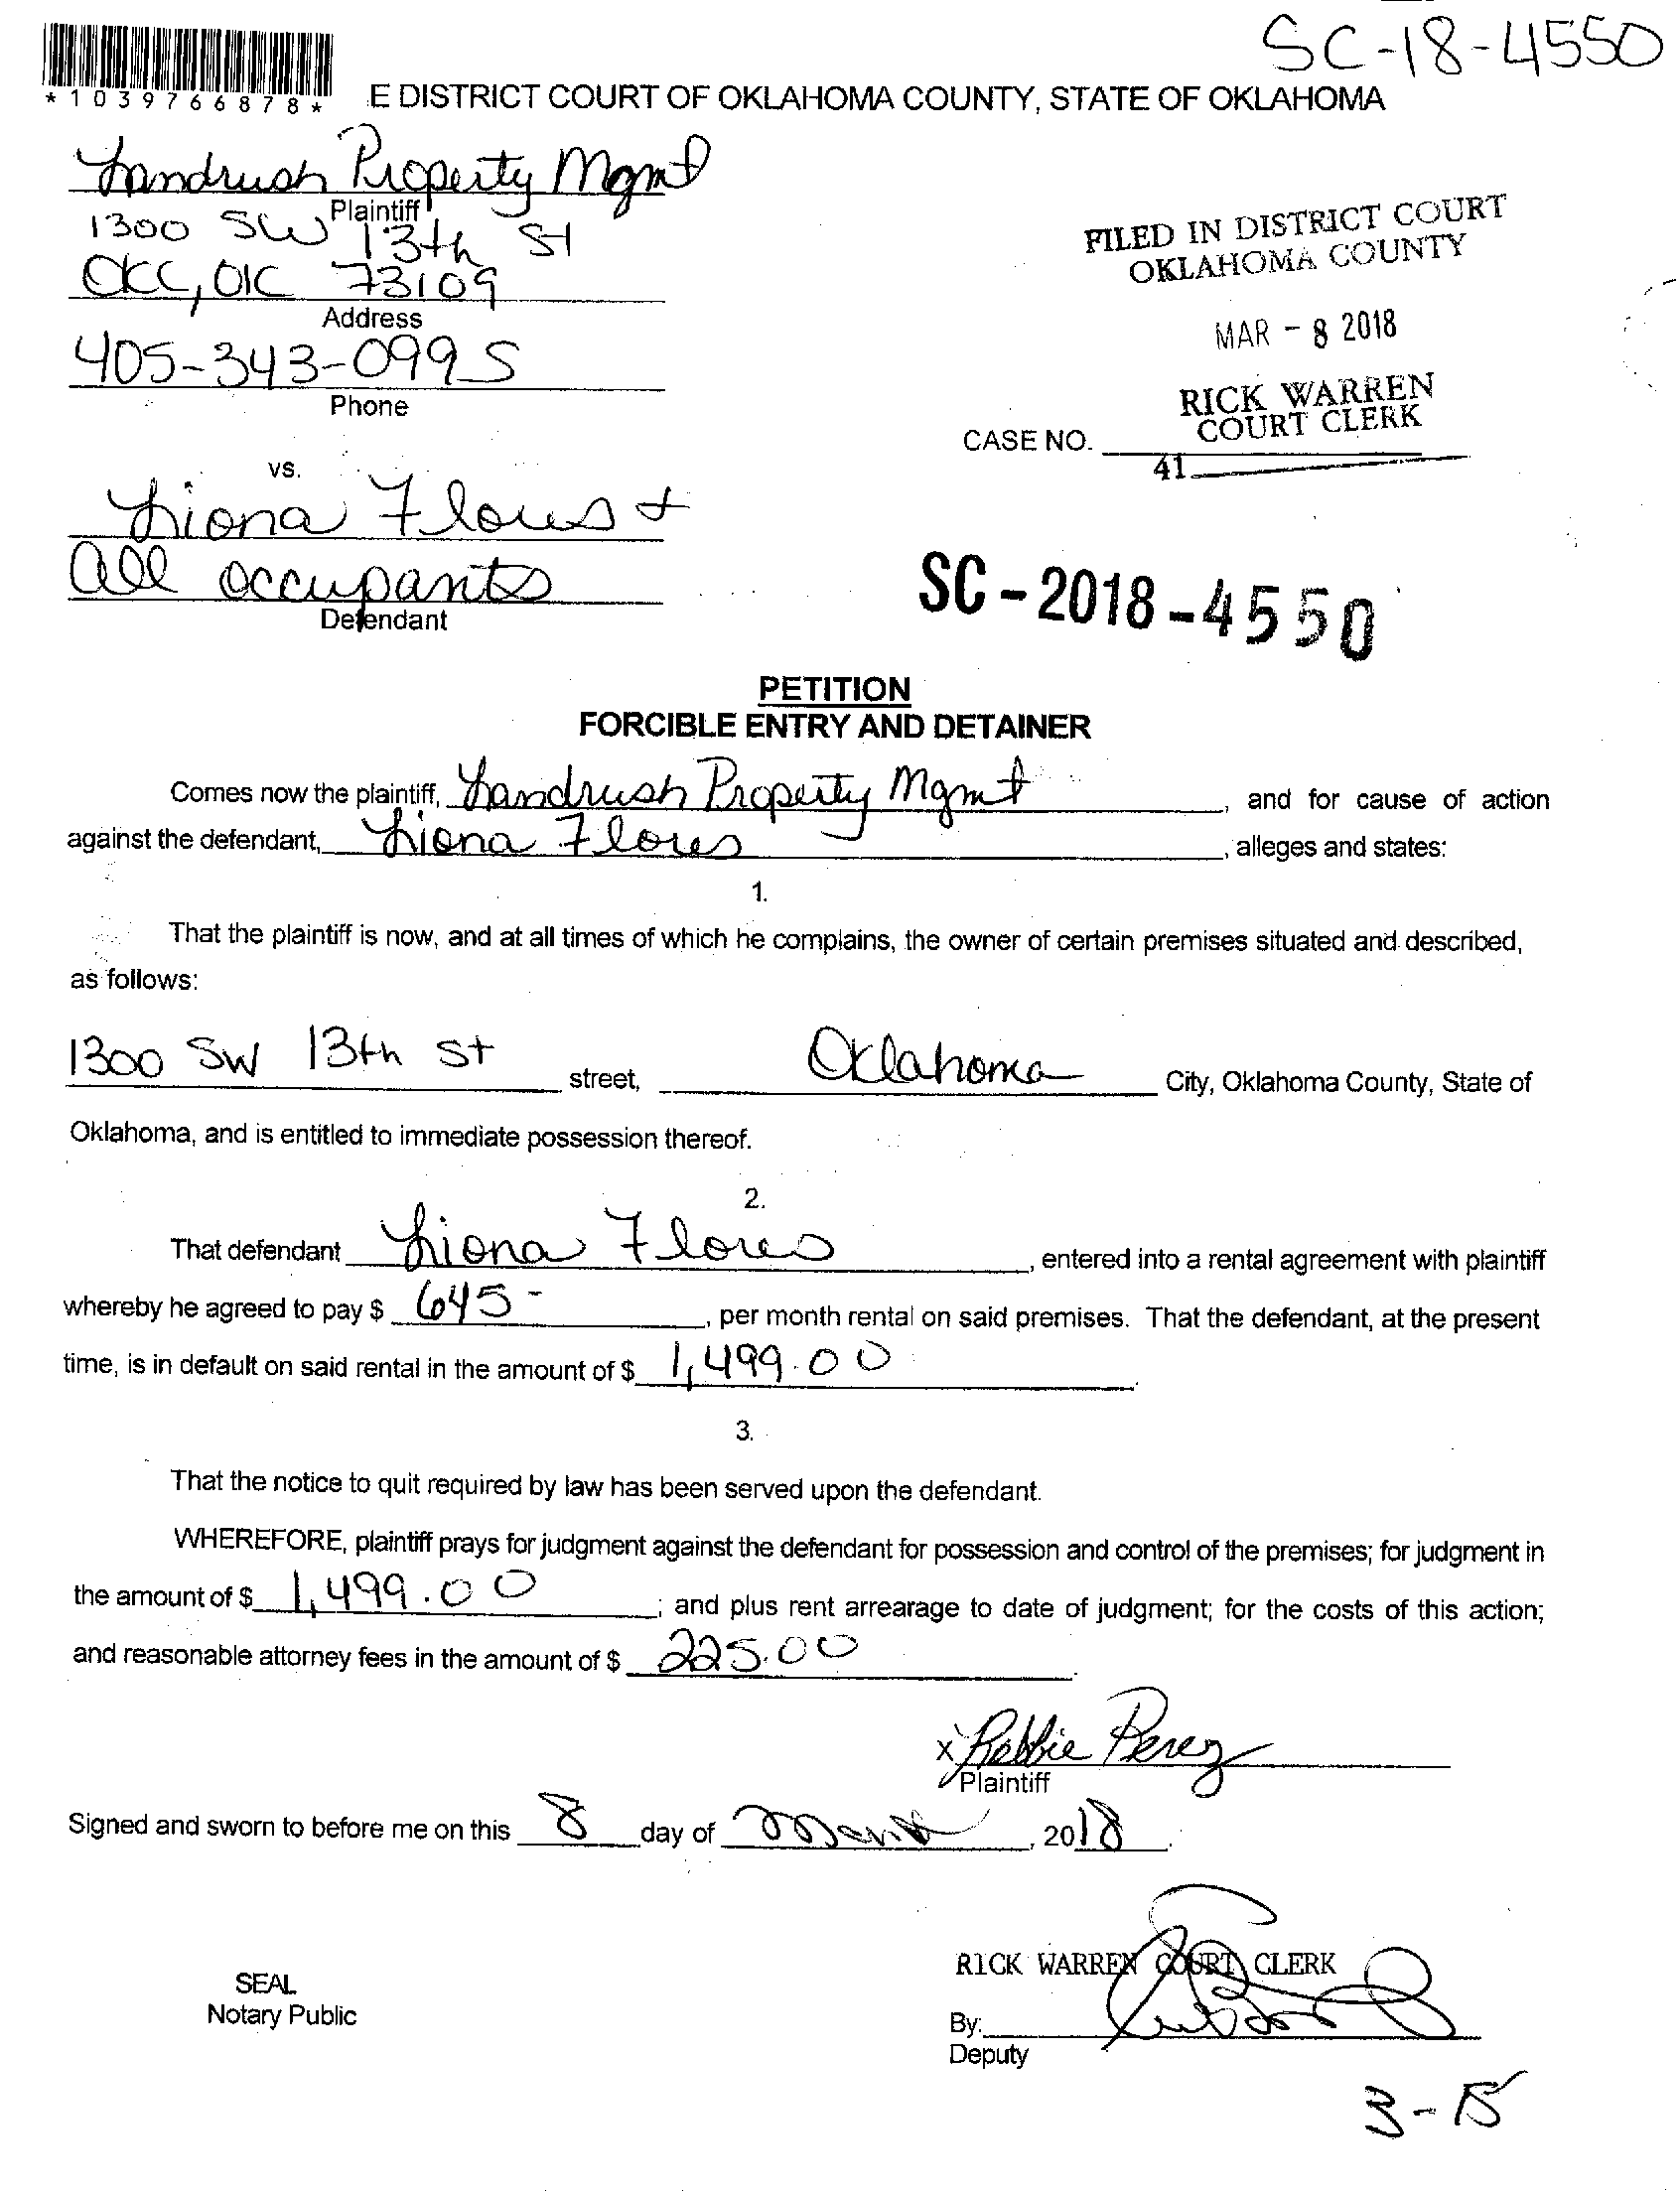 SC-18-4550
*1039766878*
E DISTRICT COURT OF OKLAHOMA COUNTY, STATE OF OKLAHOMA
Landrush Property Mgmt
Plaintiff
1300 SW 13th St
OKC, OK 73109
Address
405-343-0995
Phone
FILED IN DISTRICT COURT
OKLAHOMA COUNTY
MAR - 8 2018
RICK WARREN
COURT CLERK
CASE NO.
41
vs.
Liona Flores +
all occupants
Defendant
SC-2018-4550
PETITION
FORCIBLE ENTRY AND DETAINER
Comes now the plaintiff, Landrush Property Mgmt, and for cause of action
against the defendant, Liona Flores, alleges and states:
1.
That the plaintiff is now, and at all times of which he complains, the owner of certain premises situated and described,
as follows:
1300 SW 13th St street, Oklahoma City, Oklahoma County, State of
Oklahoma, and is entitled to immediate possession thereof.
2.
That defendant Liona Flores, entered into a rental agreement with plaintiff
whereby he agreed to pay $ 645-, per month rental on said premises. That the defendant, at the present
time, is in default on said rental in the amount of $ 1,499.00.
3.
That the notice to quit required by law has been served upon the defendant.
WHEREFORE, plaintiff prays for judgment against the defendant for possession and control of the premises; for judgment in
the amount of $ 1,499.00; and plus rent arrearage to date of judgment; for the costs of this action;
and reasonable attorney fees in the amount of $ 225.00.
x Debbie Perez
Plaintiff
Signed and sworn to before me on this 8 day of March, 2018.
RICK WARREN COURT CLERK
SEAL
Notary Public
By:
Deputy
3-15